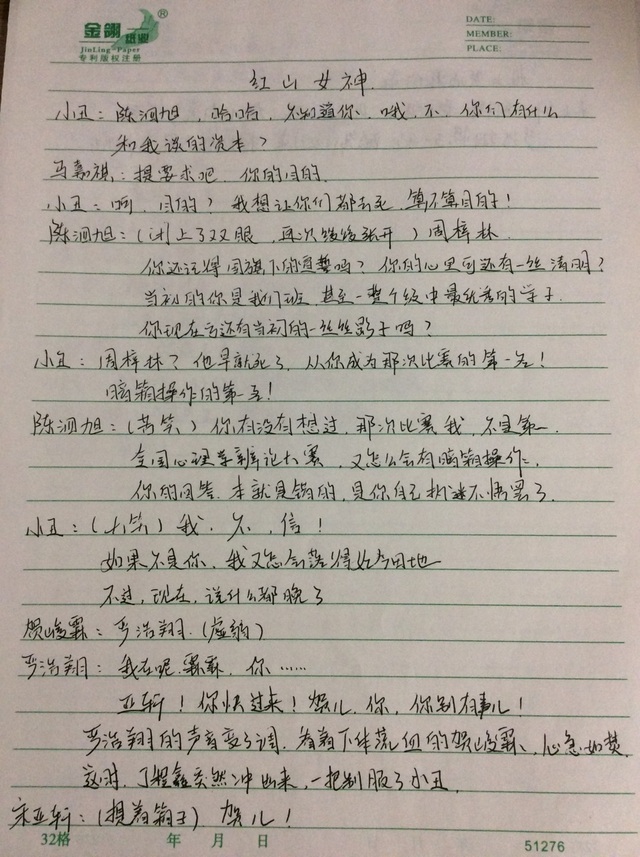 金翎纸业®
JinLing-Paper
专利版权注册
DATE:
MEMBER:
PLACE:
红山女神
小丑：陈泗旭，哈哈，不知道你，哦，不，你们有什么
和我谈的资本？
马嘉祺：提要求吧，你的目的。
小丑：呵，目的？我想让你们都去死，算不算目的！
陈泗旭：（闭上了双眼，再次缓缓张开）周梓林，
你还记得国旗下的宣誓吗？你的心里可还有一丝清明？
当初的你是我们班甚至一整个级中最优秀的学子，
你现在可还有当初的一丝丝影子吗？
小丑：周梓林？他早就死了，从你成为那次比赛的第一名！
暗箱操作的第一名！
陈泗旭：（苦笑）你有没有想过，那次比赛我，不是第一，
全国心理学辩论大赛，又怎么会有暗箱操作，
你的回答，本就是错的，是你自己执迷不悟罢了，
小丑：（大笑）我，不，信！
如果不是你，我又怎会落得如今田地
不过，现在，说什么都晚了
贺峻霖：严浩翔，（虚弱）
严浩翔：我在呢，霖霖，你……
亚轩！你快过来！贺儿，你，你别有事儿！
严浩翔的声音变了调，看着下体流血的贺峻霖，心急如焚，
这时，丁程鑫突然冲出来，一把制服了小丑，
宋亚轩：（提着箱子）贺儿！
32格
年 月 日
51276